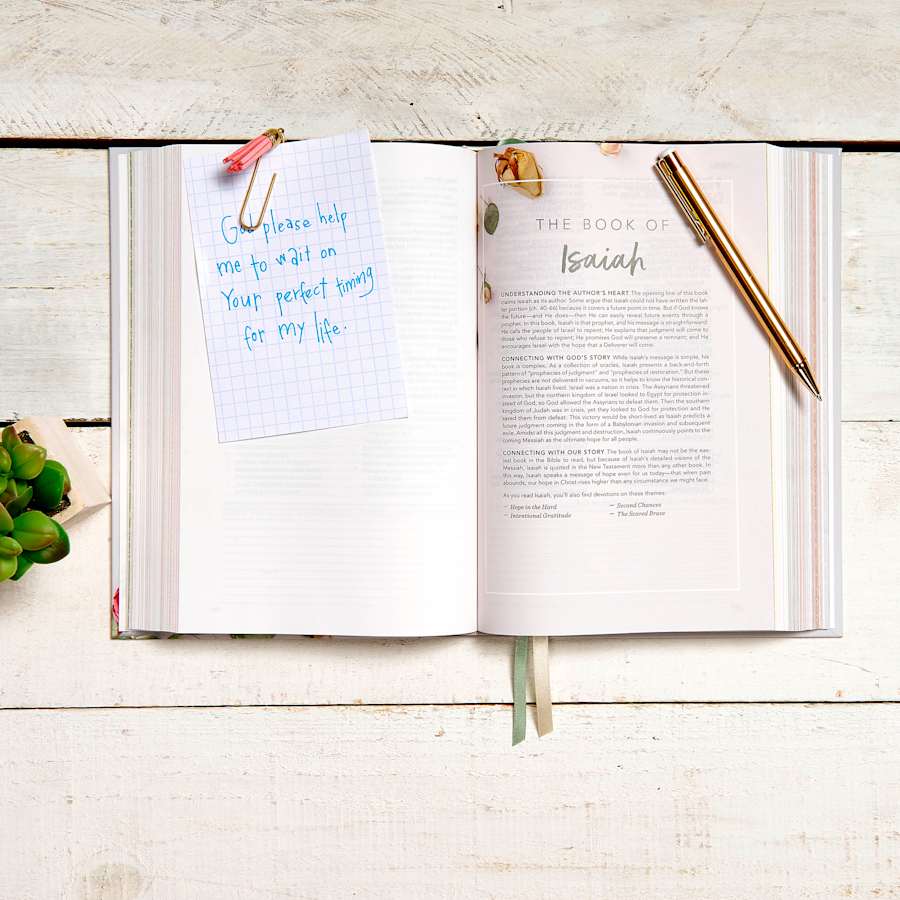 God please help
me to wait on
Your perfect timing
for my life.
THE BOOK OF
Isaiah
UNDERSTANDING THE AUTHOR'S HEART The opening line of this book
claims Isaiah as its author. Some argue that Isaiah could not have written the lat-
ter portion (ch. 40–66) because it covers a future point in time. But if God knows
the future—and He does—then He can easily reveal future events through a
prophet. In this book, Isaiah is that prophet, and his message is straightforward:
He calls the people of Israel to repent; He explains that judgment will come to
those who refuse to repent; He promises God will preserve a remnant; and He
encourages Israel with the hope that a Deliverer will come.
CONNECTING WITH GOD'S STORY While Isaiah's message is simple, his
book is complex. As a collection of oracles, Isaiah presents a back-and-forth
pattern of "prophecies of judgment" and "prophecies of restoration." But these
prophecies are not delivered in vacuums, so it helps to know the historical con-
text in which Isaiah lived. Israel was a nation in crisis. The Assyrians threatened
invasion, but the northern kingdom of Israel looked to Egypt for protection in-
stead of God, so God allowed the Assyrians to defeat them. Then the southern
kingdom of Judah was in crisis, yet they looked to God for protection and He
saved them from defeat. This victory would be short-lived as Isaiah predicts a
future judgment coming in the form of a Babylonian invasion and subsequent
exile. Amidst all this judgment and destruction, Isaiah continuously points to the
coming Messiah as the ultimate hope for all people.
CONNECTING WITH OUR STORY The book of Isaiah may not be the eas-
iest book in the Bible to read, but because of Isaiah's detailed visions of the
Messiah, Isaiah is quoted in the New Testament more than any other book. In
this way, Isaiah speaks a message of hope even for us today—that when pain
abounds, our hope in Christ rises higher than any circumstance we might face.
As you read Isaiah, you'll also find devotions on these themes:
— Hope in the Hard — Second Chances
— Intentional Gratitude — The Scared Brave